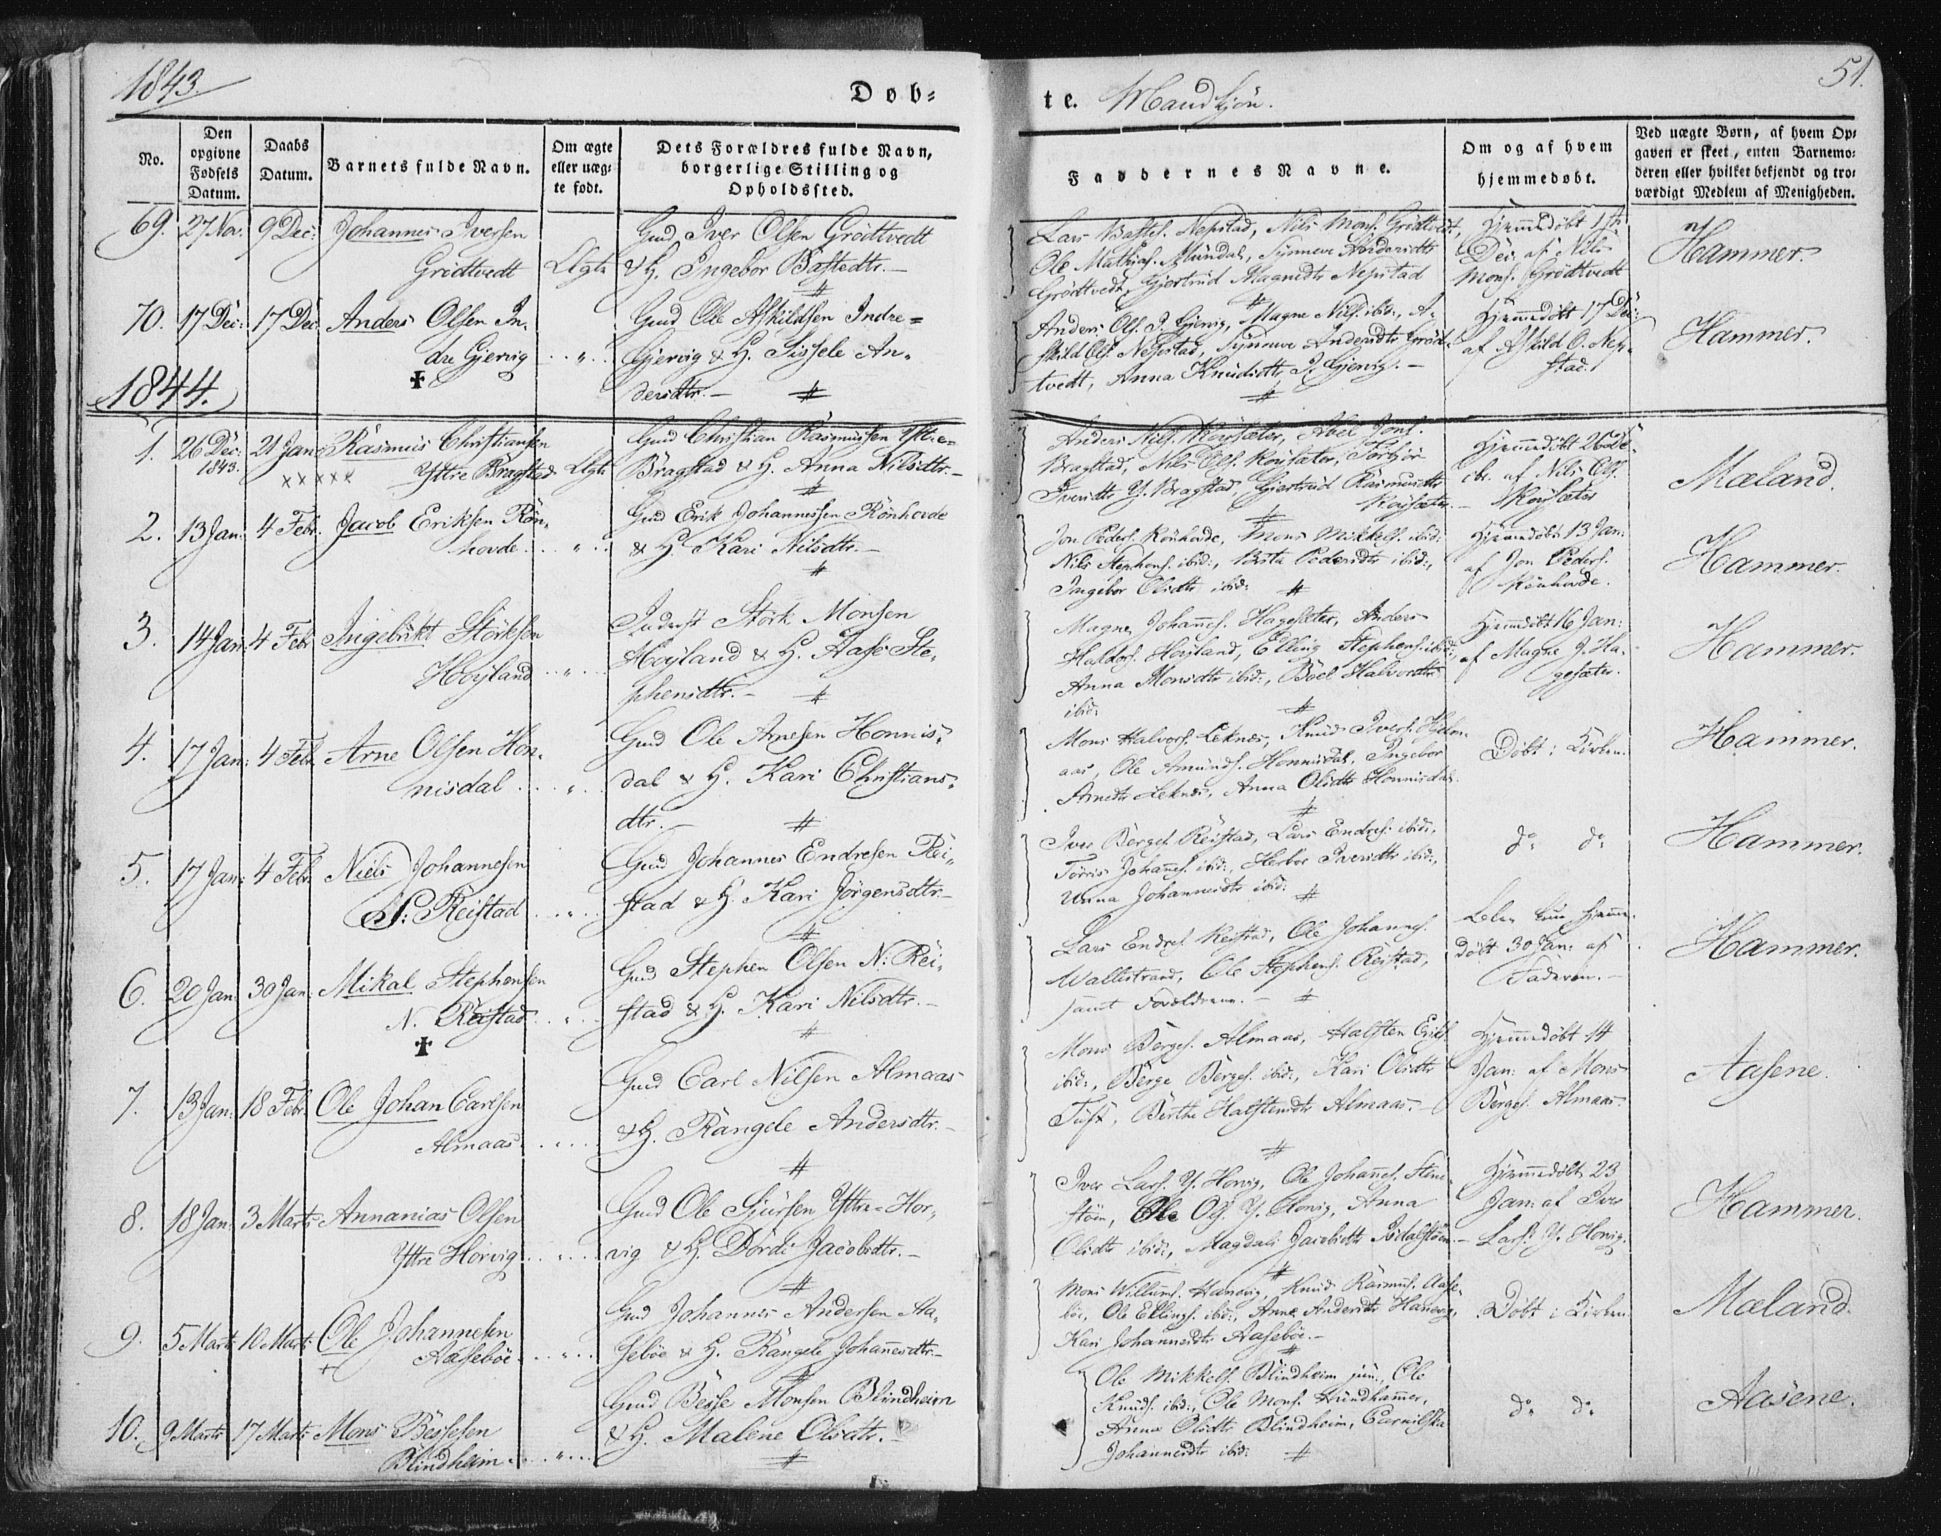 1843.
Dob=
te. Mandkjön.
51.
No.
Den opgivne Fodsels Datum.
Daabs Datum.
Barnets fulde Navn.
Om ægte eller uæg- te fodt.
Dets Forældres fulde Navn, borgerlige Stilling og Opholdssted.
Faddernes Navne.
Om og af hvem hjemmedobt.
Ved uægte Børn, af hvem Op- gaven er skeet, enten Barnemo- deren eller hvilket bekjendt og tro- værdigt Medlem af Menigheden.
69. 27 Nov. 9 Dec: Johannes Iversen
Grödtvedt
Gmd Iver Olsen Grödtvedt
& H. Ingebor Bastedtr.
Lars Nepstad, Nils Mons. Grödtvedt,
Ole Mathias. Mundal, Synneve Andersdtr
Grödtvedt, Gjertrud Magnedtr Nepstad
Hjemmedöbt 1ste
Dec. af Nils
Mons. Grödtvedt
Hammer.
70. 17 Dec: 17 Dec Anders Olsen In-
dre Gjervig
Gmd Ole Askildsen Indre=
Gjervig & H. Sissele An-
dersdtr.
Anders Ols. I. Gjervig, Magne Nils. ibid:, A-
skild Ols. Nepstad, Synneve Andersdtr Gröd-
tvedt, Anna Knudsdtr I. Gjervig.
Hjemmedöbt 17 Dec:
af Askild O. Nep-
stad.
Hammer.
1844.
1. 26 Dec: 1843. 21 Jan: Rasmus Christiansen
Yttre Bragstad
Gmd Christian Rasmussen Yttre=
Bragstad & H. Anna Nilsdtr.
Anders Nils. Röysæter, Abel Jons.
Bragstad, Nils Ols. Röysæter,
Iversdtr Y. Bragstad, Gjertrud Rasmusdtr
Röysæter.
Hjemmedöbt 26 De-
cbr. af Nils Ols.
Röysæter
Mæland.
2. 13 Jan: 4 Febr. Jacob Eriksen Rön-
hovde
Gmd Erik Johannessen Rönhovde
& H. Kari Nilsdtr.
Jon Peders. Rönhovde, Mons Mikkels. ibid:
Nils Stephens. ibid:, Brita Pedersdtr ibid:,
Ingebor Olsdtr ibid:
Hjemmedöbt 13 Jan:
af Jon Peders.
Rönhovde.
Hammer.
3. 14 Jan: 4 Febr Ingebrikt Störksen
Höyland
Störk Monsen
Höyland & H. Aase Ste-
phensdtr.
Magne Johans. Hagesæter, Anders
Haldors. Höyland, Elling Stephens. ibid:,
Anna Monsdtr ibid:, Böel Halvorsdtr
ibid:
Hjemmedöbt 16 Jan:
af Magne J. Ha-
gesæter.
Hammer.
4. 17 Jan: 4 Febr. Arne Olsen Hon-
nisdal
Gmd Ole Arnesen Honnis-
dal & H. Kari Christians-
dtr.
Mons Halvors. Leknes, Knud Ivers. Hjelm-
aas, Ole Amunds. Honnisdal, Ingebor
Arnedtr Leknes, Anna Olsdtr Honnisdal.
Döbt i Kirken.
Hammer.
5. 17 Jan: 4 Febr. Niels Johannesen
N: Reistad
Gmd Johannes Endresen Rei-
stad & H. Kari Jörgensdtr.
Iver Börges. Reistad, Lars Endres. ibid:,
Torris Johans. ibid:, Herbor Iversdtr ibid:,
Anna Johannesdtr ibid:
do do
Hammer.
6. 20 Jan: 30 Jan: Mikal Stephensen
N. Reistad
Gmd Stephen Olsen N: Rei-
stad & H. Kari Nilsdtr.
Lars Endres. Reistad, Ole Johannes.
Wallestrand, Ole Stephens. Reistad,
samt Forældrene.
döbt 30 Jan: af
Faderen.
Hammer.
7. 13 Jan: 18 Febr. Ole Johan Carlsen
Almaas
Gmd Carl Nilsen Almaas
& H. Rangele Andersdtr.
Mons Börges. Almaas, Halsten Eriks.
ibid:, Börge Börges. ibid:, Kari Olsdtr
Tuft, Berthe Halstensdtr Almaas.
Hjemmedöbt 14
Jan: af Mons
Börges. Almaas.
Aasene.
8. 18 Jan: 3 Marts Annanias Olsen
Yttre Horvig
Gmd Ole Siursen Yttre=Hor-
vig & H. Dorde Jacobsdtr.
Iver Lars. Y. Horvig, Ole Johans. Stene-
stöen, Ole Ols. Y. Horvig, Anna
Olsdtr ibid:, Magdali Jacobsdtr
Hjemmedöbt 23
Jan: af Iver
Lars. Y. Horvig.
Hammer.
9. 5 Marts 10 Marts Ole Johannesen
Aaseböe
Gmd Johannes Andersen Aa-
seböe & H. Rangele Johannesdtr.
Mons Willums. Hanevig, Knud Rasmus. Aase-
böe, Ole Ellings. ibid:, Anne Andersdtr Hanevig,
Kari Johannesdtr Aaseböe.
Döbt i Kirken
Mæland.
10. 9 Marts 17 Marts Mons Bessesen
Blindheim
Gmd Besse Monsen Blindheim
& H. Malene Olsdtr.
Ole Mikkels. Blindheim jun:, Ole
Knuds. ibid:, Ole Mons. Hundhammer,
Anna Olsdtr Blindheim,
Johannesdtr ibid:
do do
Aasene.